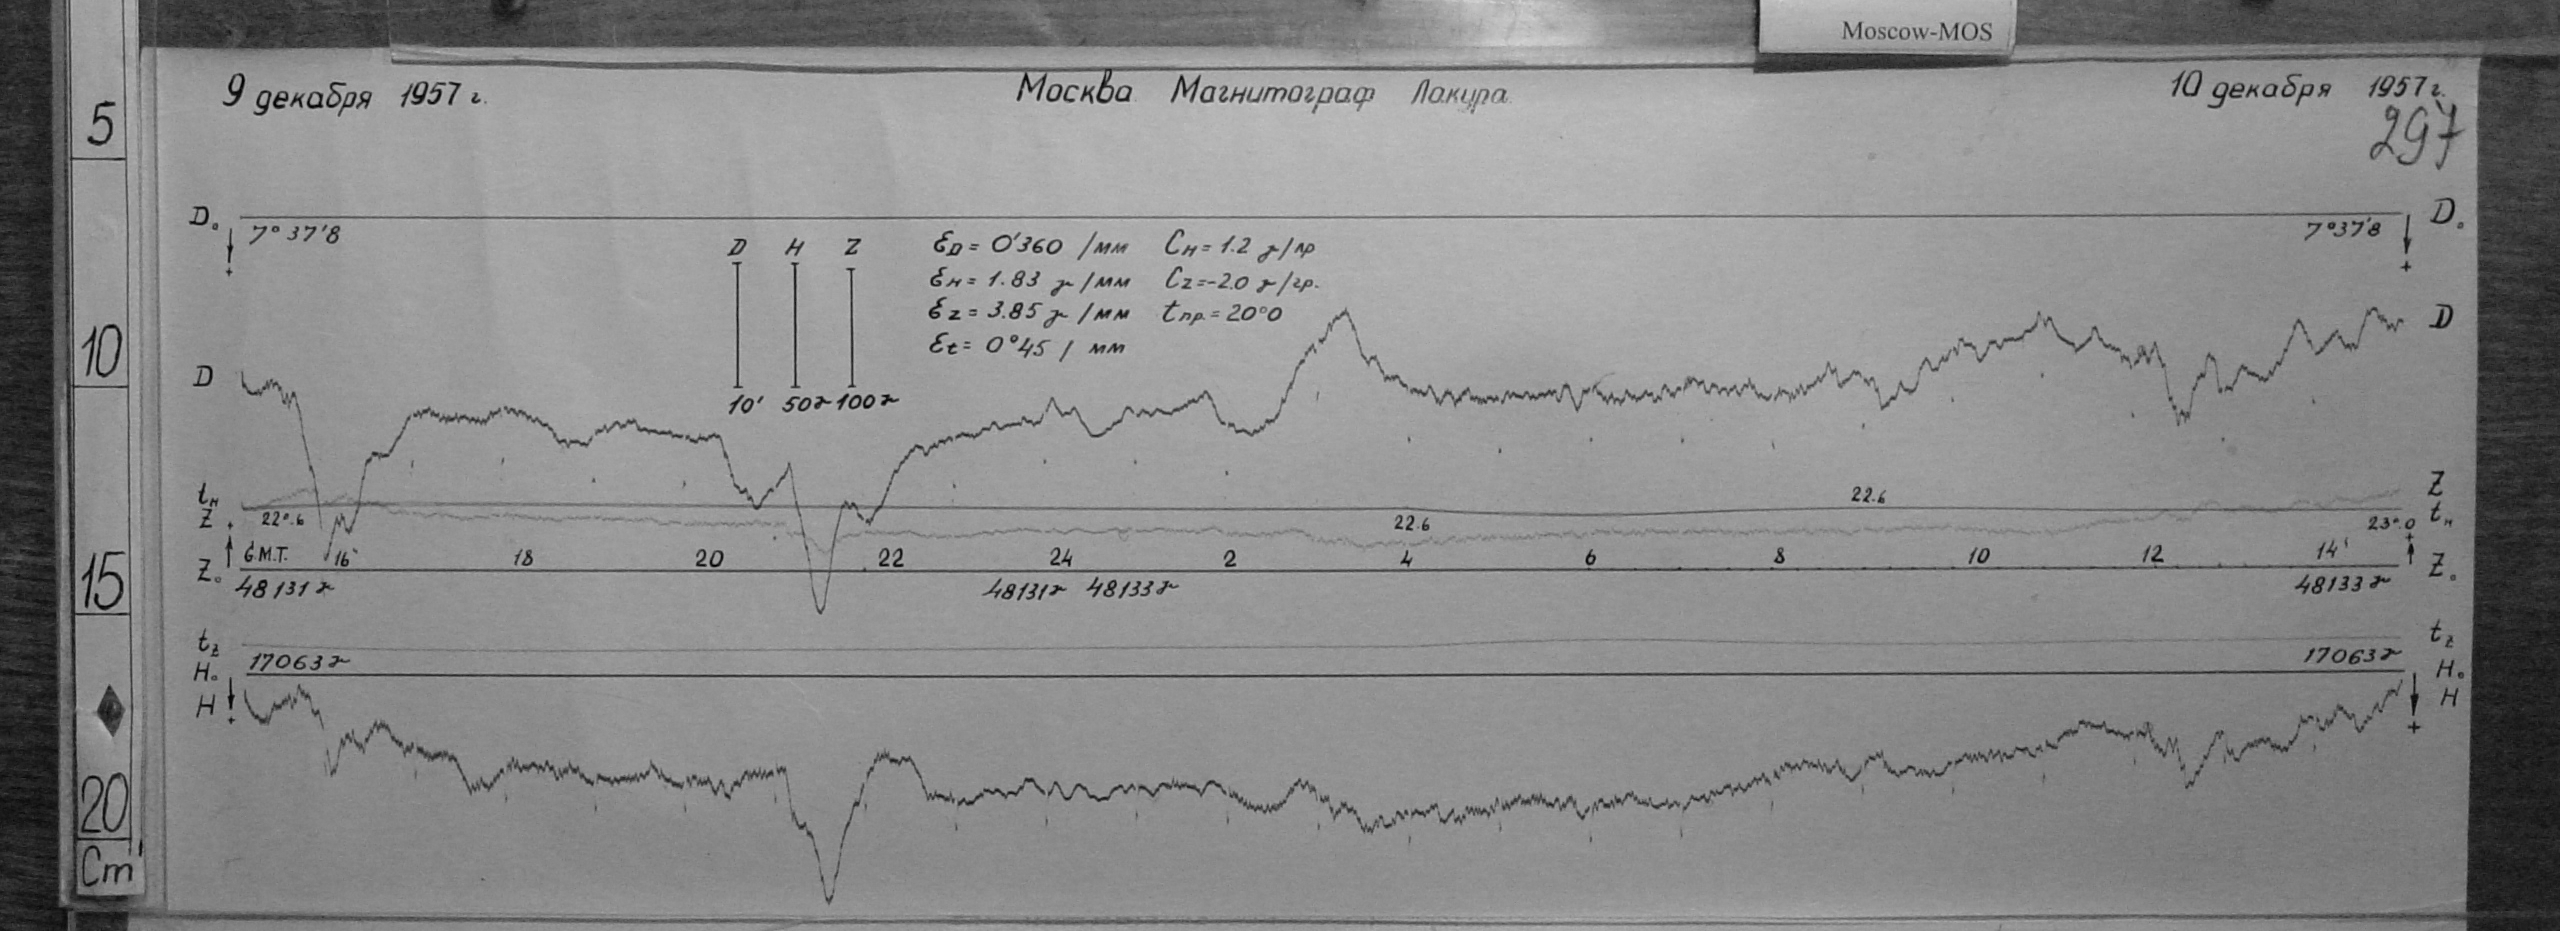 Moscow-MOS
9 декабря 1957 г. Москва Магнитограф Лакура 10 декабря 1957 г.
297
5
D₀ D₀
7° 37'8 7°37'8
+ +
D H Z
ƐD = 0'360 /мм Cн = 1.2 γ/гр
Ɛн = 1.83 γ /мм Cz = -2.0 γ/гр.
Ɛz = 3.85 γ /мм tпр. = 20°0
Ɛt = 0°45 / мм
10' 50γ 100γ
10
D D
tн Z
Z tн
22°.6 22.6 22.6 23°.0
+ +
G.M.T. 16 18 20 22 24 2 4 6 8 10 12 14
Z₀ Z₀
48131γ 48131γ 48133γ 48133γ
15
tz tz
17063γ 17063γ
H₀ H₀
H H
+ +
20
Cm